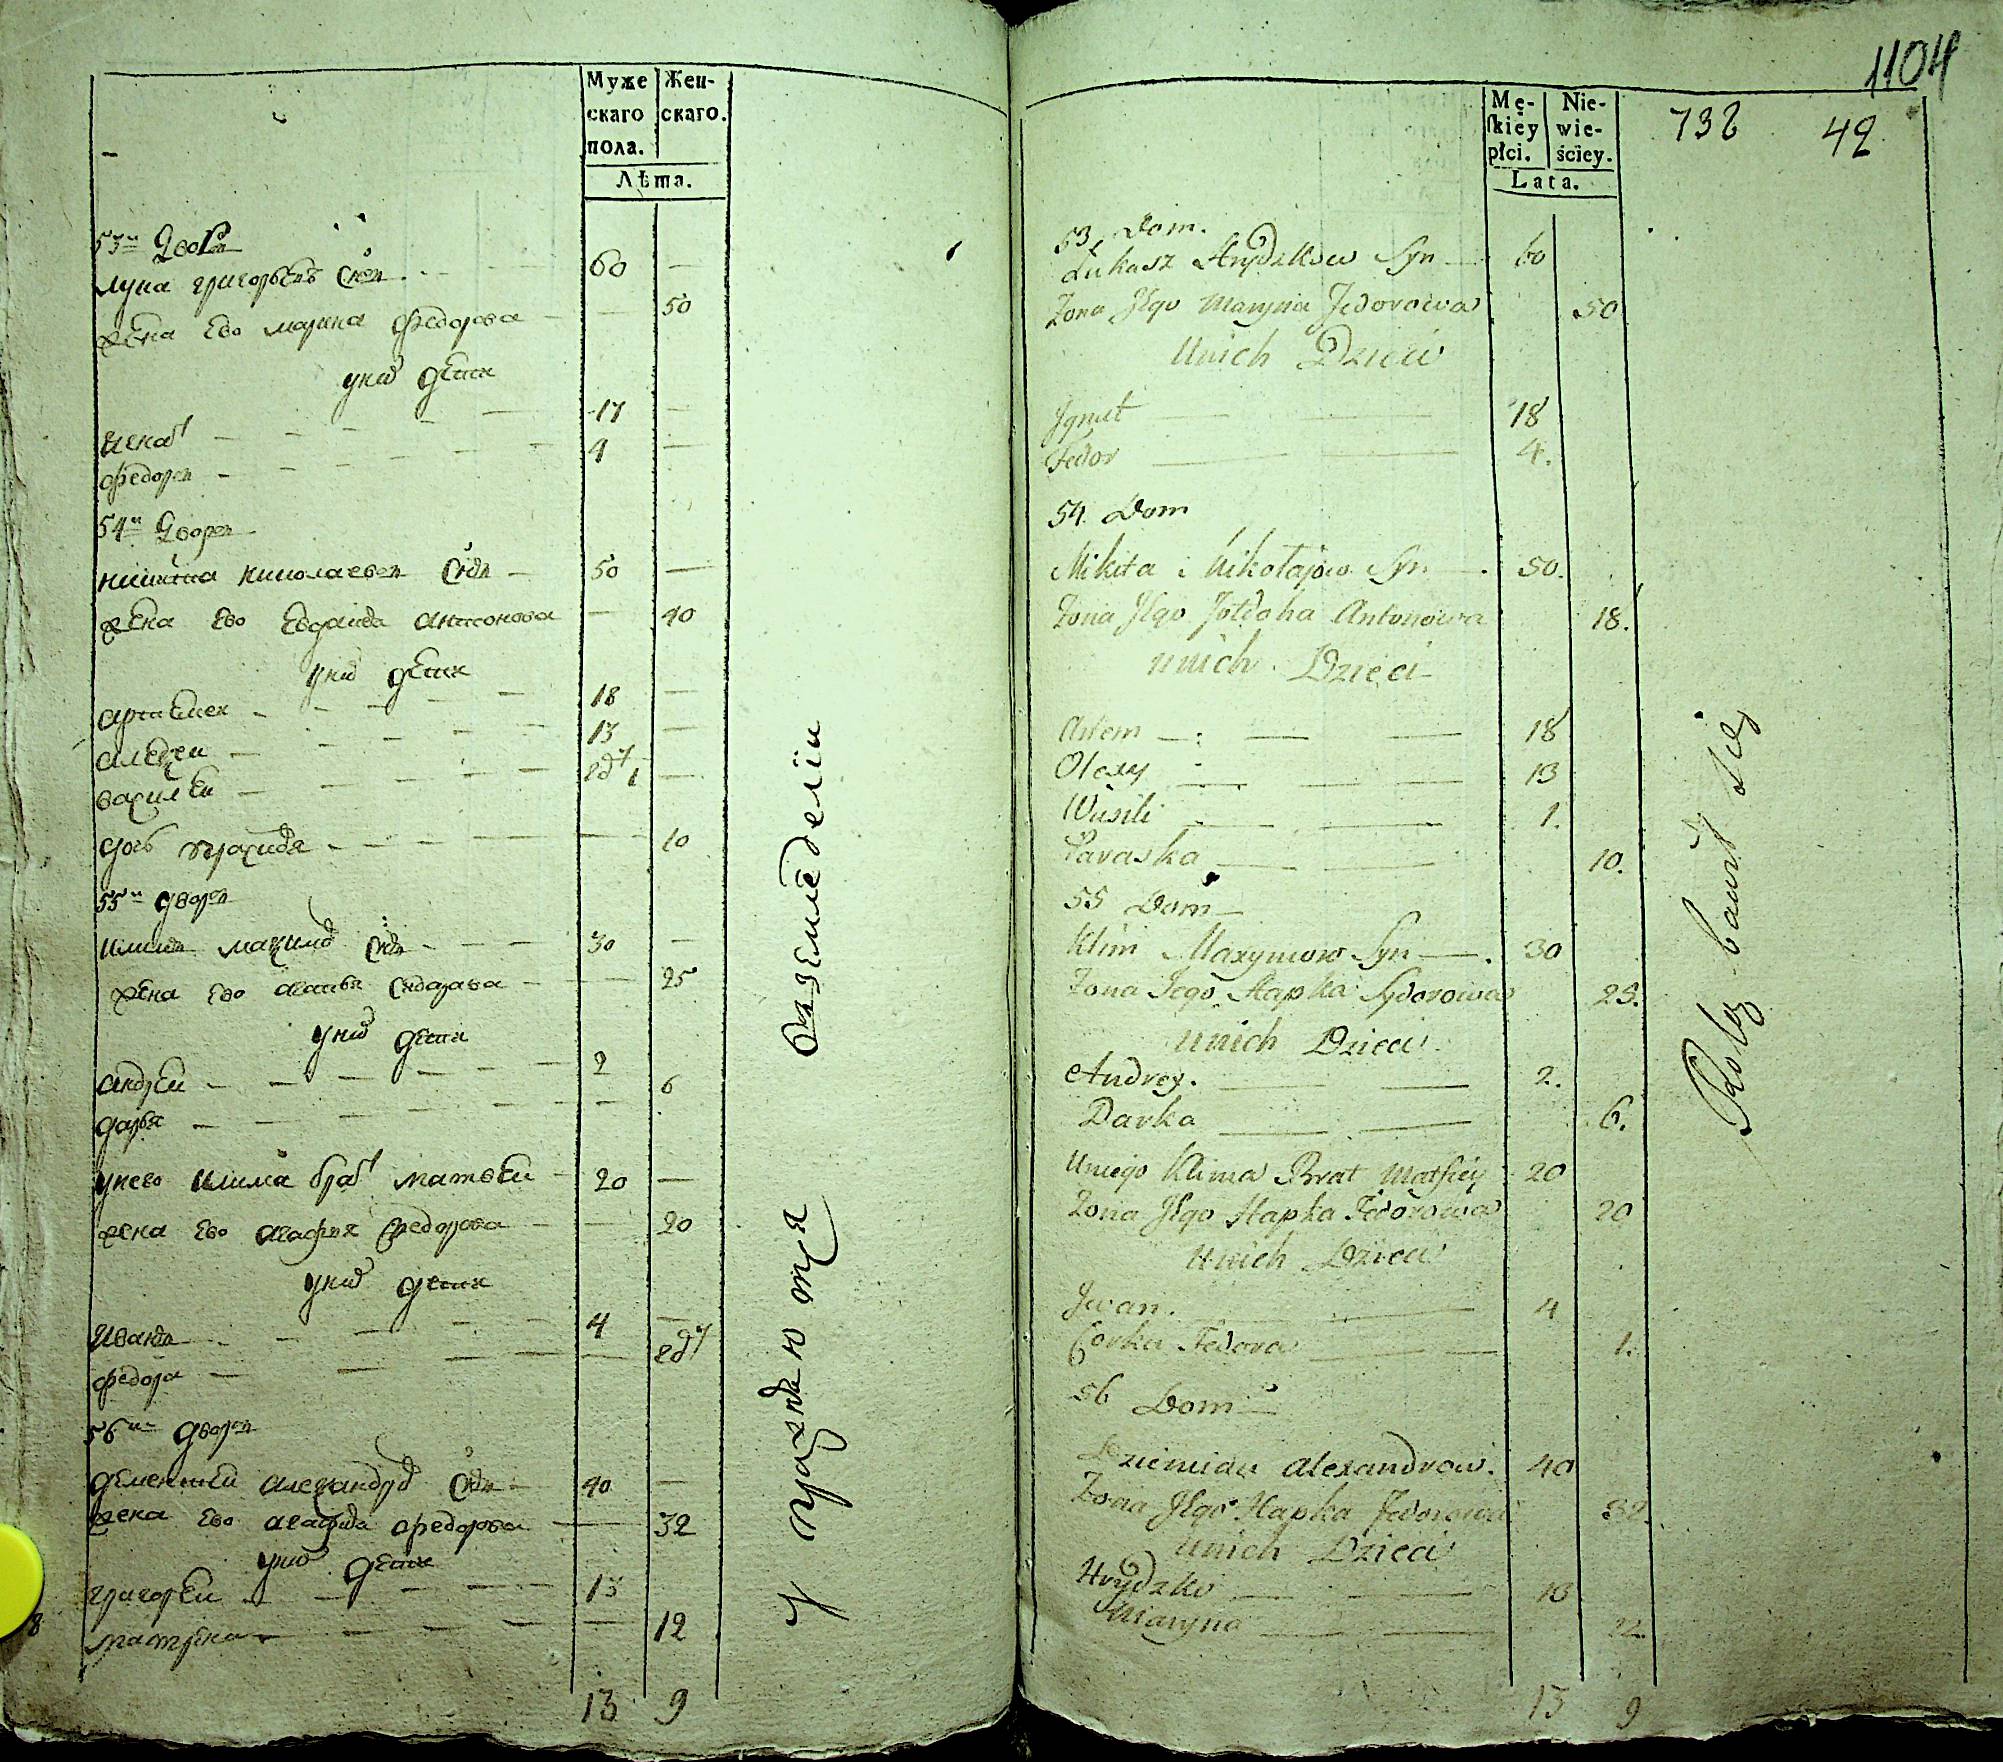 Муже скаго пола.
Жен- скаго.
Лѣта.
53й Дворъ
лука григорьевъ Сынъ 60 —
жена ево марина федорова — 50
уних дети
игнат — 17 —
федоръ — 4 —
54й Дворъ
никита николаевъ Сынъ — 50 —
жена ево евдокия антонова — 40
уних дети
артемей — 18 —
алексеи — 13 —
василеи — год 1 —
дочь параскевья — 10
55й дворъ
климъ максимов Сынъ — 30 —
жена ево агафья Сидорова — 25
уних дети
андреи — 2
дарья — 6
унего клима брат матвеи — 20 —
жена ево агафия Федорова — 20
уних дети
Иванъ — 4 —
федора — год
56й дворъ
дементеи александров Сынъ — 40 —
жена ево агафия федорова — 32
уних дети
григореи — 13
матрена — 12
13 9
упражняются в земледелии
1104
Mę- skiéy płci.
Nie- wie- ściey.
Lata.
732 42
53 Dom.
Łukasz Hrydzkow Syn — 60
Zona Jego Maryna Fedorowa 50
Unich Dzieci
Jgnat — 18
Fedor — 4.
54 Dom
Mikita Nikołajow Syn — 50.
Zona Jego Antonowa 18.
unich Dzieci
Artem — 18
Olexy — 13
Wasili — 1.
Paraska — 10.
55 Dom —
Klim Maxymow Syn — 30
Zona Jego Hapka Sydorowa 25.
unich Dzieci
Andrey. — 2.
Darka — 6.
Uniego Klima Brat Matfiey 20
Zona Jego Hapka Fedorowa 20
Unich Dzieci
Jwan. — 4
Corka Fedora — 1.
56 Dom —
Dziemian Alexandrow. 40
Zona Jego Hapka Fedorowa 32.
unich Dzieci
Hrydzko — 13
Maryna — 12.
13 9
Rolą bawią się